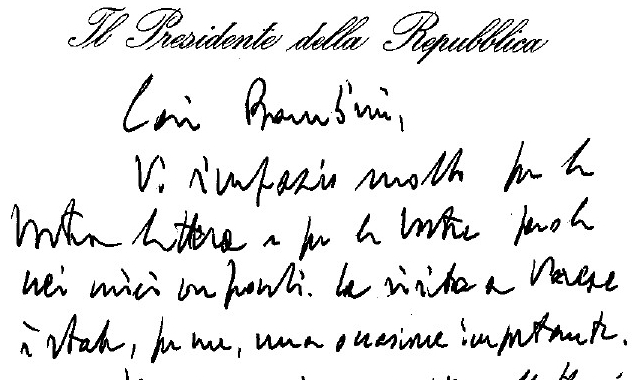 Il Presidente della Repubblica
Cari Bambini,
Vi ringrazio molto per la
Vostra lettera e per le Vostre parole
nei miei confronti. La visita a Varese
è stata, per me, una occasione importante.